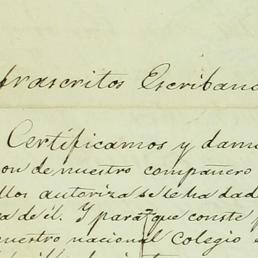 frascritos Escriban
Certificamos y dam
on de nuestro compañero
llos autoriza se le ha dad
a de él. Y para que conste
uestro nacional Colegio